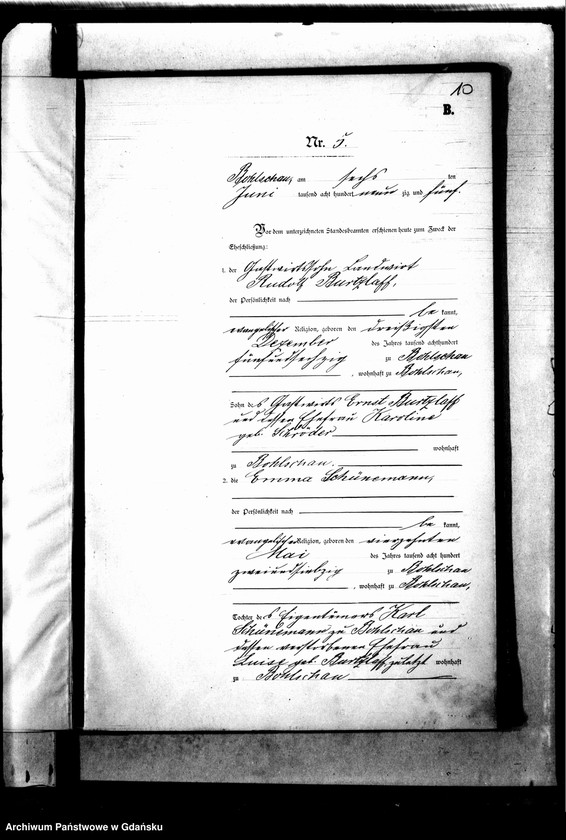 10
B.
Nr. 5.
Bohlschau, am sechs ten
Juni tausend acht hundert neun zig und fünf.
Vor dem unterzeichneten Standesbeamten erschienen heute zum Zweck der
Eheschließung:
1. der Gastwirtssohn Landwirt
Rudolf Burtzlaff,
der Persönlichkeit nach
be kannt,
evangelischer Religion, geboren den dreißigsten
Dezember des Jahres tausend achthundert
fünfundsechzig zu Bohlschau
, wohnhaft zu Bohlschau,
Sohn des Gastwirts Ernst Burtzlaff
und dessen Ehefrau Karoline
geb. Schröder
wohnhaft
zu Bohlschau.
2. die Emma Schünemann,
der Persönlichkeit nach
be kannt,
evangelischer Religion, geboren den vierzehnten
Mai des Jahres tausend acht hundert
zweiundsiebzig zu Bohlschau
, wohnhaft zu Bohlschau,
Tochter des Eigentümers Karl
Schünemann zu Bohlschau und
dessen verstorbenen Ehefrau
Luise geb. Burtzlaff zuletzt wohnhaft
zu Bohlschau
Archiwum Państwowe w Gdańsku